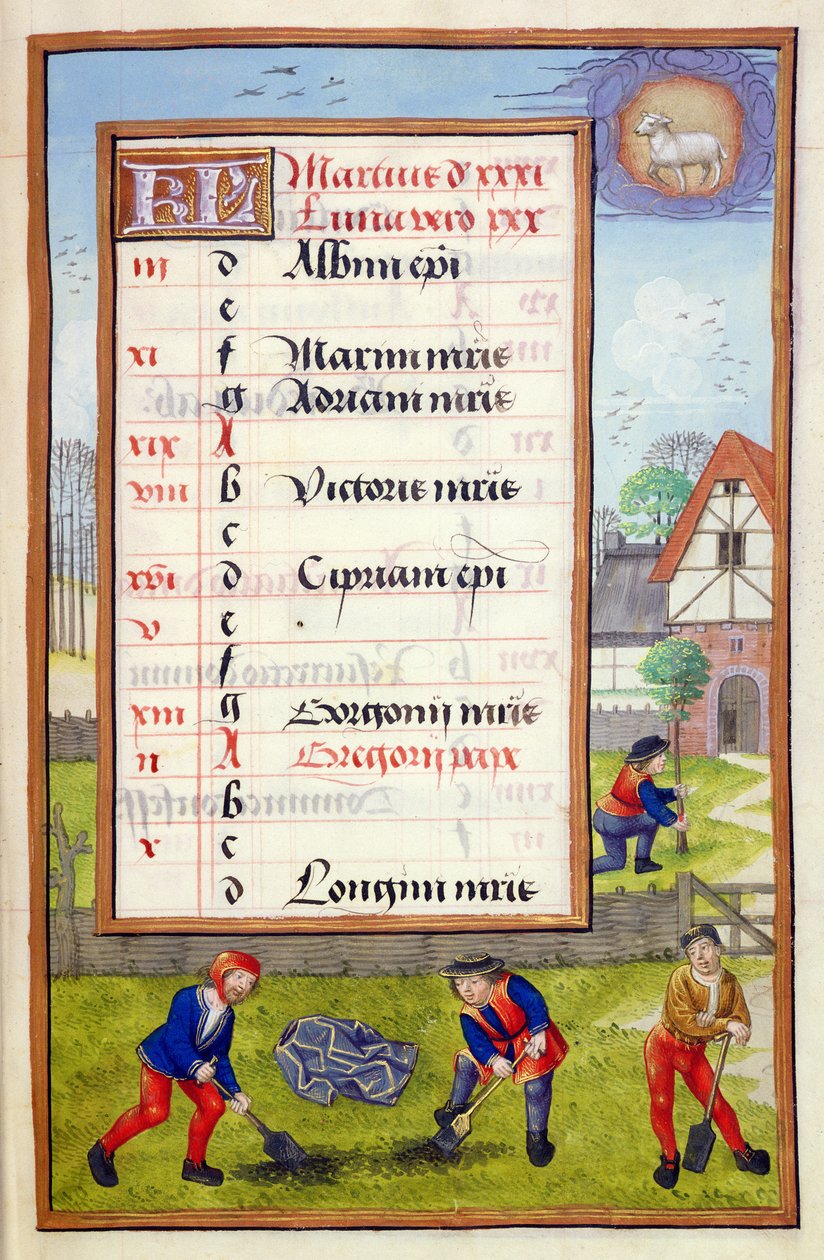 KL Martius d' xxxi
Luna vero xxx
iii d Albini epi
e
xi f Marini mris
g Adriani mris
xix A
viii b Victoris mris
c
xvi d Cipriani epi
v e
f
xiii g Gorgonij mris
ii A Gregorij pape
b
x c
d Longini mris